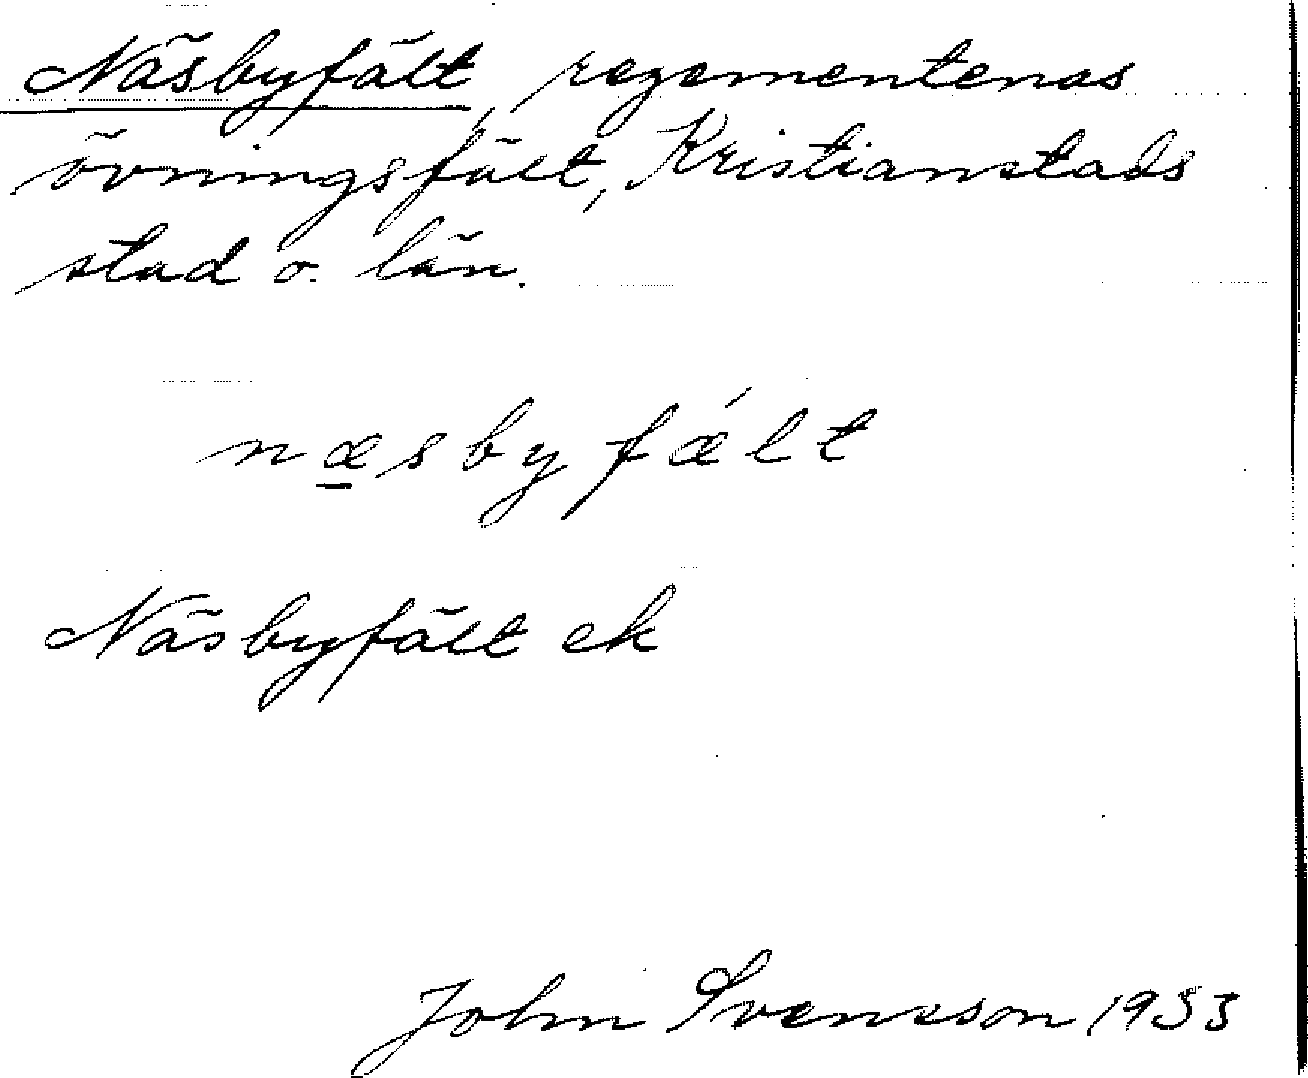 Näsbyfält, regementenas
övningsfält, Kristianstads
stad o. län.
næ̲sbyfǽlt
Näsbyfält ek
John Svensson 1933